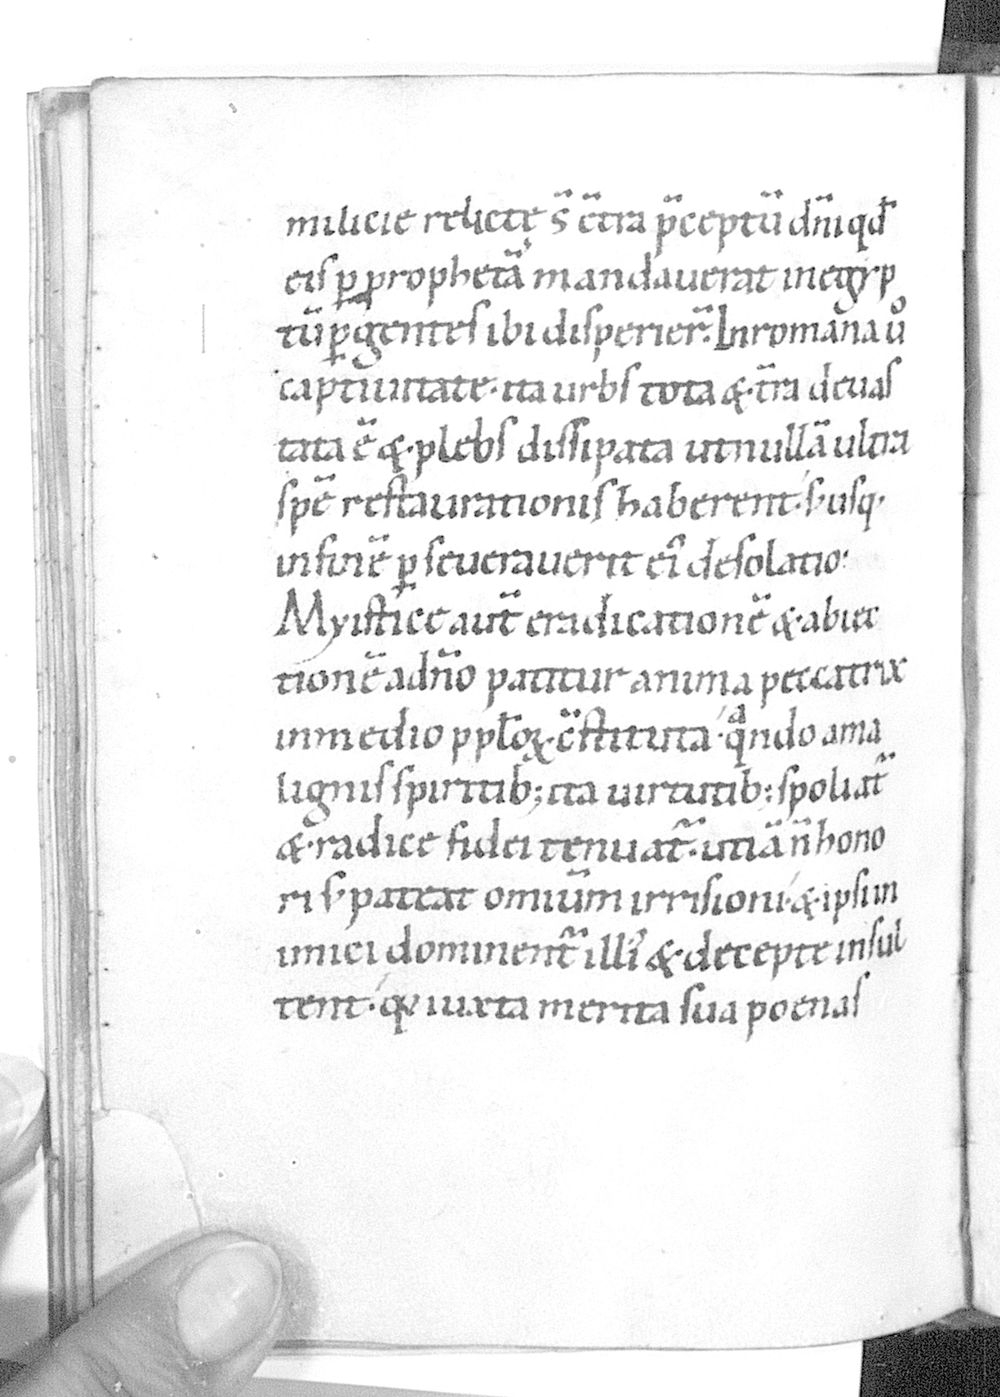 milicie relictę s̄ c̄tra p̄ceptū dn̄i qđ
eis ꝑ prophetā mandauerat in egyp
tū ꝑgentes ibi disperier̄. In romana uͦ
captiuitate. ita urbs tota &. t̄ra deuas
tata ē &. plebs dissipata ut nullā ultra
spē restaurationis haberent. s. usq.
in finē ꝑseuerauerit ei᷒ desolatio.
Myistice aut̄ eradicationē &. abiec
tionē a dn̄o patitur anima peccatrix
in medio ppl̄oꝝ. c̄stituta. qͣndo a ma
lignis spiritib; ita uirtutib; spoliat᷑
&. radice fidei tenuat᷑. ut iā n̄ hono
ri s. pateat omiūm irrisioni. &. ipsi in
imici dominent᷑ illi᷒ &. decepte insul
tent. qͥ iuxta merita sua poenas